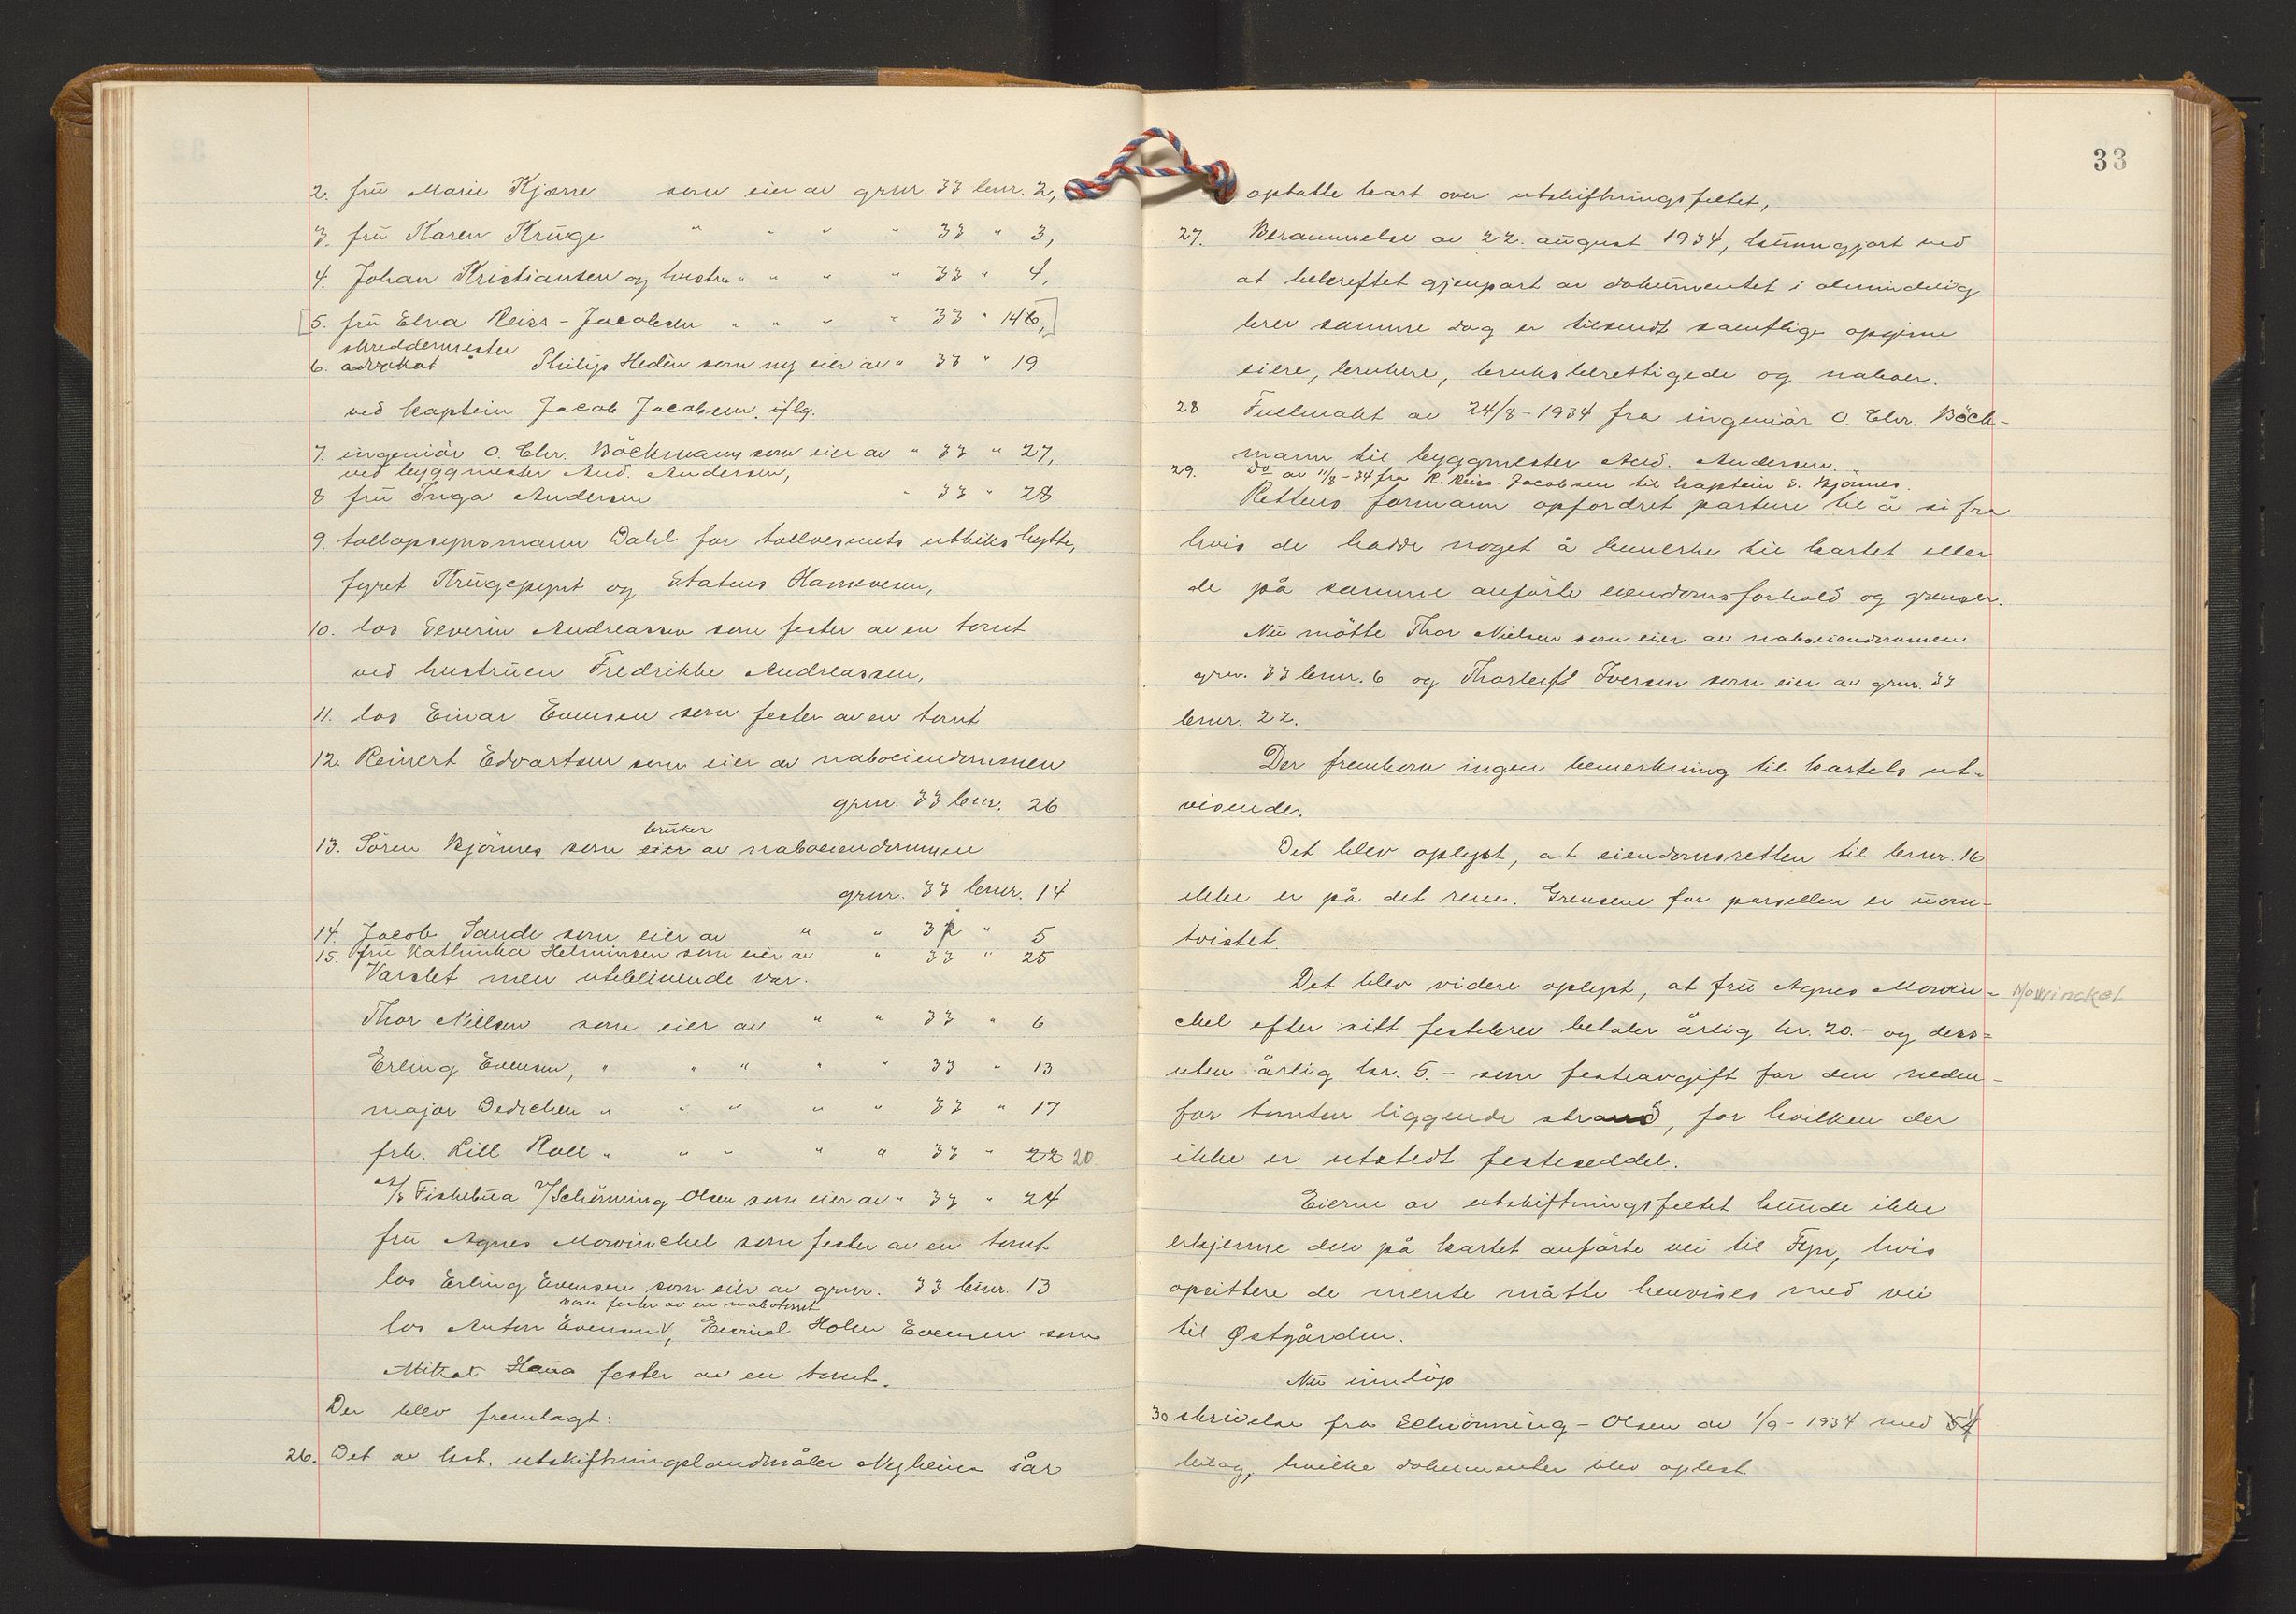 2. frū Marie Kjærre som eier av grnr. 33 brnr. 2,
3. frū Karen Krūge " " " " 33 " 3,
4. Johan Kristiansen og hustru " " " " 33 " 4,
[5. frū Elna Reiss-Jacobsen " " " " 33 " 146,]
skreddermester
6. advokat " Philip Hedèn som ny eier av " 33 " 19
ved kaptein Jacob Jacobsen. iflg.
7. ingeniör O. Chr. Böckmann som eier av " 33 " 27,
ved byggmester And. Andersen,
8 frū Inga Andersen " 33 " 28
9. tollopsynsmann Dahl for tollvesenets utkikshytte,
fyret Krūgepynt og Statens Havnevesen,
10. los Severin Andreassen som fester av en tomt
ved hustrūen Fredrikke Andreassen,
11. los Einar Evensen som fester av en tomt
12. Reinert Edvartsen som eier av naboeiendommen
grnr. 33 brnr. 26
brūker
13. Sören Bjönnes som eier av naboeiendommen
grnr. 33 brnr. 14
14. Jacob Sande som eier av " " 32 " 5
15. frū Kathinka Helminsen som eier av " 33 " 25
Varslet men uteblivende var:
Thor Nielsen som eier av " " 33 " 6
Erling Evensen, " " " " " 33 " 13
major Dedichen " " " " " 33 " 17
frk. Lill Roll " " " " " 33 " 22 20
A/S Fiskebūa v/Schönning-Olsen som eier av " 33 " 24
frū Agnes Mowinckel som fester av en tomt
los Erling Evensen som eier av grnr. 33 brnr. 13
som fester av en nabotomt
los Anton Evensen V, Eivind Holm Evensen som
fester av en tomt.
Der blev fremlagt:
26. Det av kst. utskiftningslandmåler Nyheim iår
33
optatte kart over utskiftningsfeltet,
27. Berammelse av 22. aūgust 1934, kūnngjort ved
at bekreftet gjenpart av dokūmentet i almindelig
brev samme dag er tilsendt samtlige opgivne
eiere, brukere, bruksberettigede og naboer.
28 Fullmakt av 24/8-1934 fra ingeniör O. Chr. Böck-
mann til byggmester And. Andersen.
29. do av 11/8-34 fra R. Reiss-Jacobsen til kaptein S. Bjönnes.
Rettens formann opfordret partene til å si fra
hvis de hadde noget å bemerke til kartet eller
de på samme anförte eiendomsforhold og grenser.
Nū mötte Thor Nielsen som eier av naboeiendommen
grnr. 33 brnr. 6 og Thorleif Iversen som eier av grnr. 33
brnr. 22.
Der fremkom ingen bemerkning til kartets ut-
visende.
Det blev oplyst, at eiendomsretten til brnr. 16
ikke er på det rene. Grensene for parsellen er ūom-
tvistet.
Det blev videre oplyst, at frū Agnes Mowin- Mowinckel
ckel efter sitt festebrev betaler årlig kr. 20.- og dess-
uten årlig kr. 5.- som festeavgift for den neden-
for tomten liggende strand, for hvilken der
ikke er utstedt festeseddel.
Eierne av utskiftningsfeltet kūnde ikke
erkjenne den på kartet anförte vei til Flyn, hvis
opsittere de mente måtte henvises med vei
til Østgården.
Nū innlöp
30 skrivelse fra Schiönning-Olsen av 1/9-1934 med 54
bilag, hvilke dokumenter blev oplest.